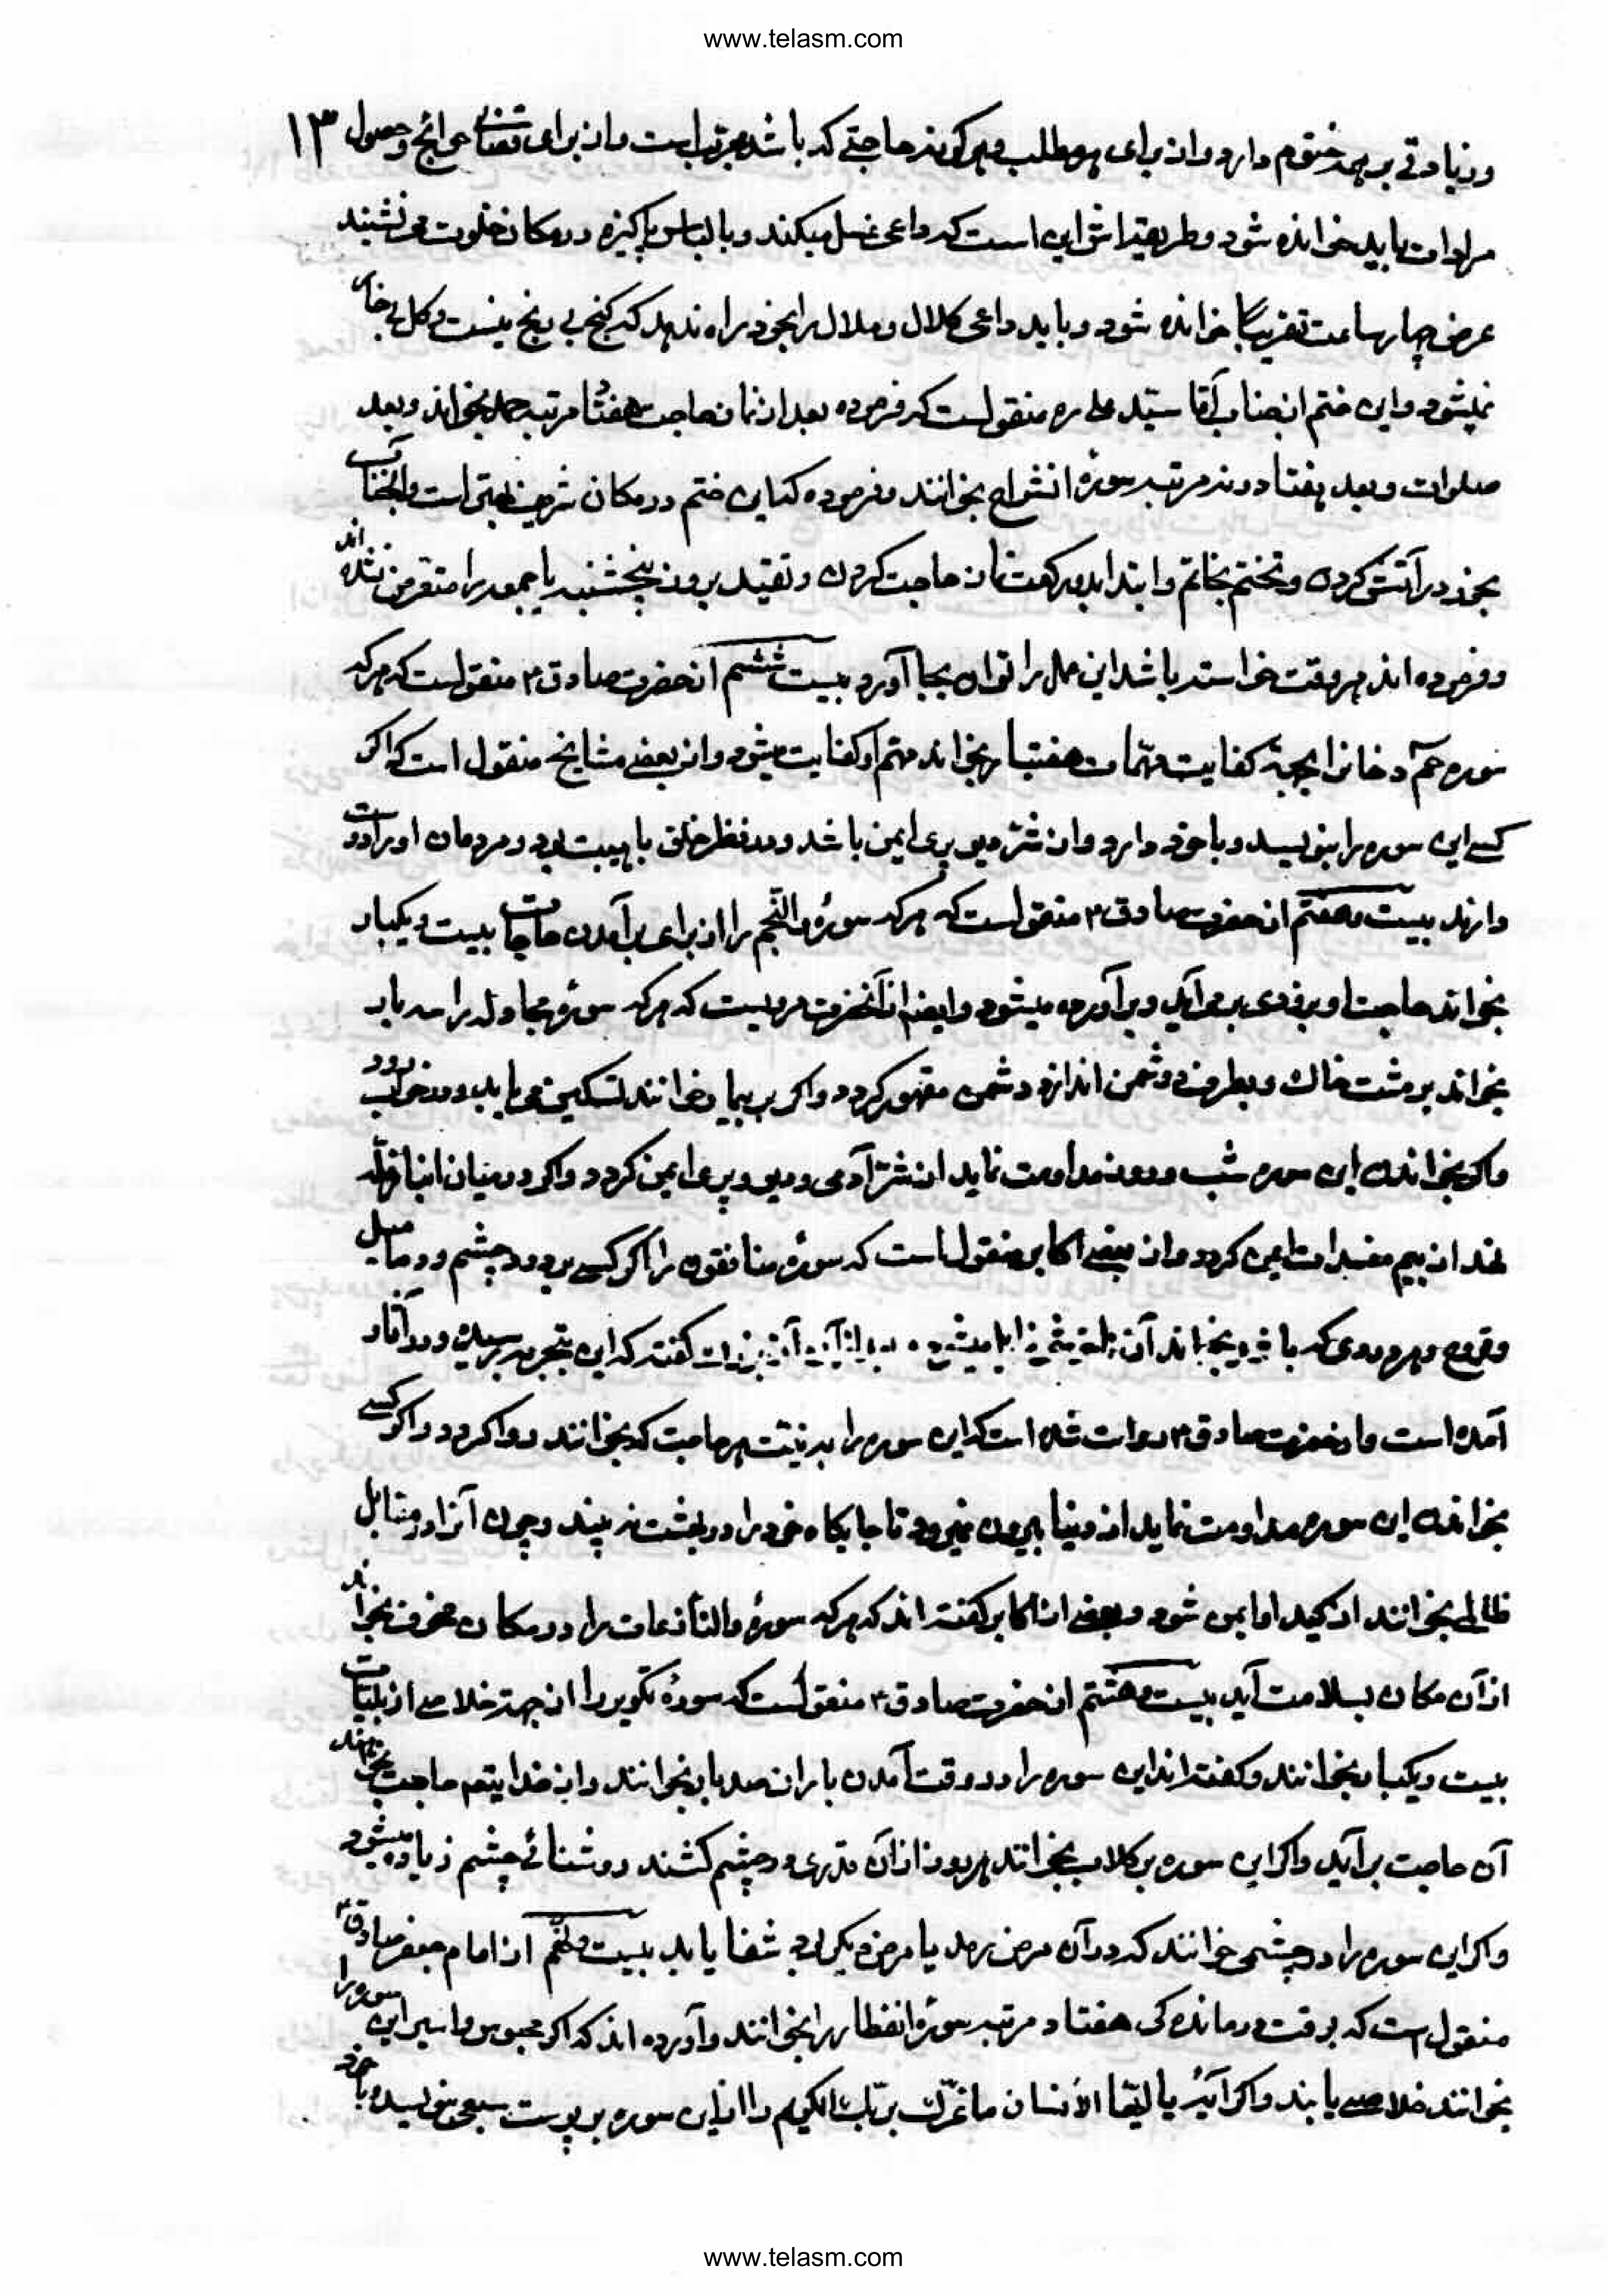 www.telasm.com
۱۳
و زیادتی بر همه ختوم دارد و از برای هر مطلب و هر گونه حاجتی که باشد مجرب است و از برای قضای حوائج و حصول
مرادات باید خوانده شود و طریقه‌اش این است که داعی غسل میکند و با لباس پاکیزه در مکان خلوت می‌نشیند
عرض چهار ساعت تقریبا خوانده شود و باید داعی کلال و ملال را بخود راه ندهد که گنج بی رنج نیست و گل بی خار
نمیشود و این ختم از جناب آقا سید علی ره منقول است که فرموده بعد از نماز حاجت هفتاد مرتبه حمد بخواند و بعد
صلوات و بعد هفتاد و نه مرتبه سوره انشراح بخوانند و فرموده که این ختم در مکان شریف است و آنجناب
بخور در آتش کردن و تختم بخاتم و ابتدا بدو رکعت نماز حاجت کردن و تقیید بروز پنجشنبه یا جمعه را متعرض نشده اند
و فرموده اند هر وقت خواسته باشد این عمل را توان بجا آورد بیست ششم از حضرت صادق ع منقول است که هر که
سوره حم دخان را بجهة کفایت مهمات هفتبار بخواند مهم او کفایت میشود و از بعضی مشایخ منقول است که اگر
کسی این سوره را بنویسد و با خود دارد و از شر دیو پری ایمن باشد و در نظر خلق با هیبت بود و مردمان او را دوست
دارند بیست و هفتم از حضرت صادق ع منقول است که هر که سورۀ والنجم را از برای برآمدن حاجات بیست و یکبار
بخواند حاجت او بزودی بر می‌آید و برآورده میشود و ایضا از آنحضرت مرویست که هر که سورۀ مجادله را سه بار
بخواند بر مشت خاک و بطرف دشمن اندازد دشمن مقهور گردد و اگر بر بیمار خوانند تسکین می یابد و در خواب رود
و اگر بخواندن این سوره شب و روز مداومت نماید از شر آدمی و دیو و پری ایمن گردد و اگر در میان انبار غله
نهند از بیم مفسدات ایمن گردد و از بعضی اکابر منقول است که سورۀ منافقون را اگر کسی بر درد چشم و دمامیل
و قروح و هر دردی که باشد بخواند آن گفته که این بتجربه رسیده و در آثار
آمده است و از حضرت صادق ع روایت شده است که این سوره را به نیت هر حاجت که بخوانند روا گردد و اگر کسی
بخواندن این سوره مداومت نماید از دنیا بیرون نمیرود تا جایگاه خود را در بهشت نه بیند و چون آنرا در مقابل
ظالمی بخوانند از کید او ایمن شود و بعضی از اکابر گفته اند که هر که سورۀ والنازعات را در مکان مخوف بخواند
از آن مکان بسلامت آید بیست و هشتم از حضرت صادق ع منقول است که سورۀ تکویر را از جهة خلاصی از بلیات
بیست و یکبار بخوانند و گفته اند این سوره را در وقت آمدن باران صد بار بخوانند و از خدایتعم حاجت بخواهند
آن حاجت برآید و اگر این سوره بر گلاب بخوانند هر روز از آن قدری در چشم کشند روشنائی چشم زیاده میشود
و اگر این سوره را در چشمی خوانند که در آن مرض رمد یا مرض دیگر بود شفا یابد بیست و نهم از امام جعفر صادق ع
منقول است که بوقت درماندگی هفتاد مرتبه سورۀ انفطار را بخوانند و آورده اند که اگر محبوس و اسیر این سوره را
بخوانند خلاصی یابند و اگر آیۀ یا ایها الانسان ما غرک بربک الکریم را از این سوره بر پوست سبعی بنویسد و با خود
www.telasm.com